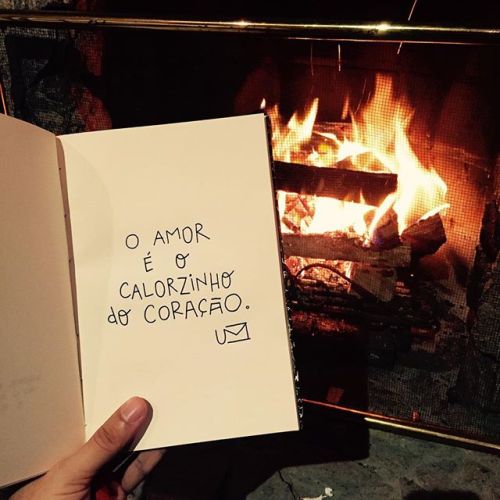 O AMOR
É O
CALORZINHO
do CORAÇÃO.
U